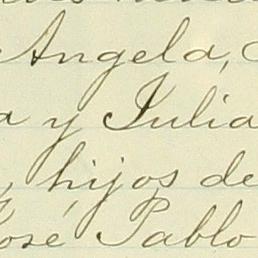 Angela,
a y Julia
, hijos de
José Pablo